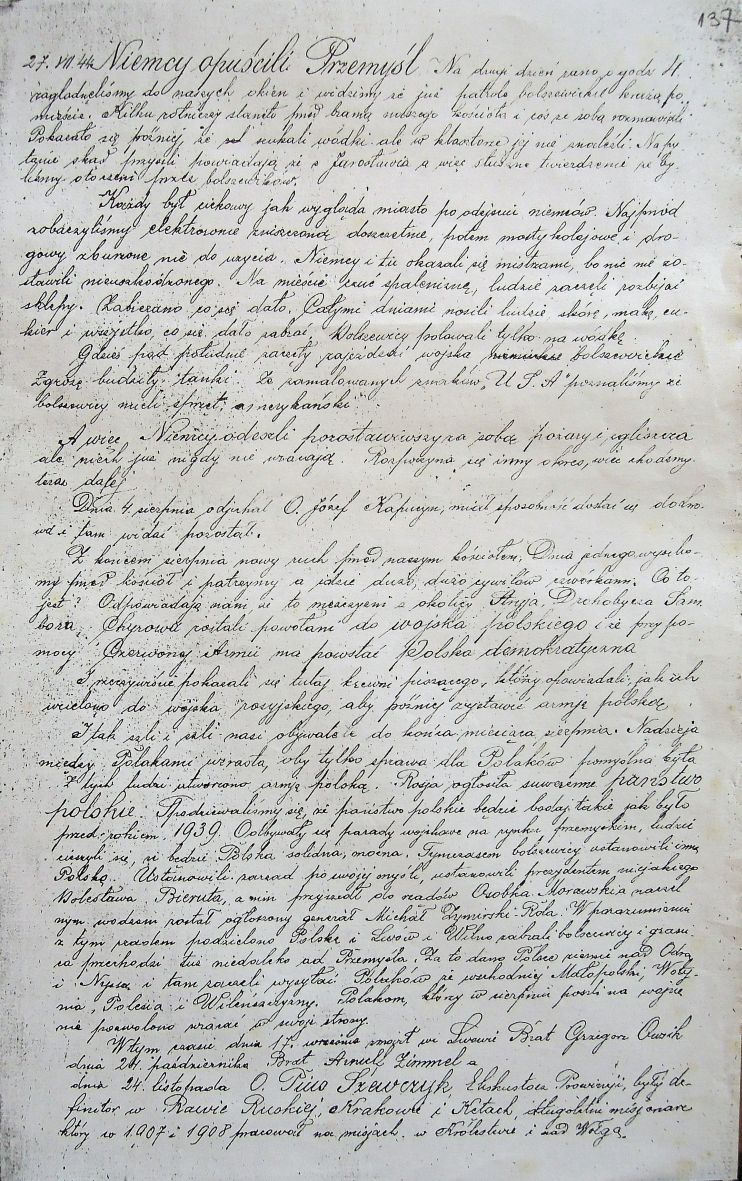 137
27. VII 44. Niemcy opuścili Przemyśl. Na drugi dzień rano o godz 4.
zaglądneliśmy do naszych okien i widzimy że już patrole bolszewickie krążą po
mieście. Kilku żołnierzy stanęło przed bramą naszego kościoła i coś ze sobą rozmawiali
Pokazało się później, że szukali wódki ale w klasztorze jej nie znaleźli. Na py
tanie skąd przyszli powiadają że z Jarosławia a więc słuszne twierdzenie że by
liśmy otoczeni przez bolszewików.
Każdy był ciekawy jak wygląda miasto po odejściu niemców. Najpród
zobaczyliśmy elektrownie zniszczoną doszczętnie, potem mosty kolejowe i dro-
gowy zburzone nie do użycia. Niemcy i tu okazali się mistrzami, bo nic nie zo-
stawili nieuszkodzonego. Na mieście czuć spaleniznę, ludzie zaczęli rozbijać
sklepy. Zabierano co się dało. Całymi dniami nosili ludzie skórę, mąkę, cu-
kier i wszystko, co się dało zabrać. Bolszewicy polowali tylko na wódkę.
Gdzieś przed południe zaczęły zajeżdżać wojska bolszewickie
Zgrozę budziły tanki. Ze zamalowanych znaków "U S. A" poznaliśmy że
bolszewicy mieli sprzęt amerykański.
A więc Niemcy odeszli pozostawiwszy za sobą pożary i zgliszcza
ale niech już nigdy nie wracają. Rozpoczyna się inny okres, więc chodźmy
teraz dalej.
Dnia 4. sierpnia odjechał O. Józef Kapucyn, miał sposobność dostać się do Kro
sna i tam widać pozostał.
Z końcem sierpnia nowy ruch przed naszym kościołem. Dnia jednego wycho-
my przed kościół i patrzymy a idzie dużo, dużo cywilów czwórkami. Co to
jest? Odpowiadają nam, że to męszczyzni z okolicy Stryja, Drohobycza Sam
bora, Chyrowa zostali powołani do wojska polskiego i że przy po-
mocy Czerwonej Armii ma powstać Polska demokratyczna
I rzeczywiście pokazali się tutaj krewni piszącego, którzy opowiadali, jak ich
wcielono do wojska rosyjskiego, aby później wystawić armję polską.
I tak szli i szli nasi obywatele do końca miesiąca sierpnia. Nadzieja
między Polakami wzrasta, oby tylko sprawa dla Polaków pomyślna była
Z tych ludzi utworzono armję polską. Rosja ogłosiła suwerenne państwo
polskie. Spodziewaliśmy się, że państwo polskie będzie bodaj takie jak było
przed rokiem 1939. Odbywały się parady wojskowe na rynku przemyskim, ludzie
cieszyli się, że będzie Polska solidna, mocna. Tymczasem bolszewicy ustanowili inną
Polskę. Ustanowili zarząd po swojej myśli ustanowili prezydentem niejakiego
Bolesława Bieruta, a nim przyszedł do rządów Osobka-Morawski a naczel
nym wodzem został ogłoszony generał Michał Żymirski-Rola. W porozumieniu
z tym rządem podzielono Polskę i Lwów i Wilno zabrali bolszewicy i grani
ca przechodzi tuż niedaleko od Przemyśla. Za to dano Polsce ziemie nad Odrą
i Nyssą i tam zaczęli wysyłać Polaków ze wschodniej Małopolski, Woły
nia, Polesia i Wileńszczyzny. Polakom, który w sierpniu poszli na wojnę
nie pozwolono wracać w swoje strony.
W tym czasie dnia 17. września zmarł we Lwowie Brat Grzegorz
dnia 24. października Brat Zimmel a
dnia 24. listopada O. Pius Szewczyk Ekskustosz Prowincji, były de-
finitor w Rawie Ruskiej, Krakowie i Kętach, długoletni misjonarz
który w 1907 i 1908 pracował na misjach w Królestwie i nad Wołgą.